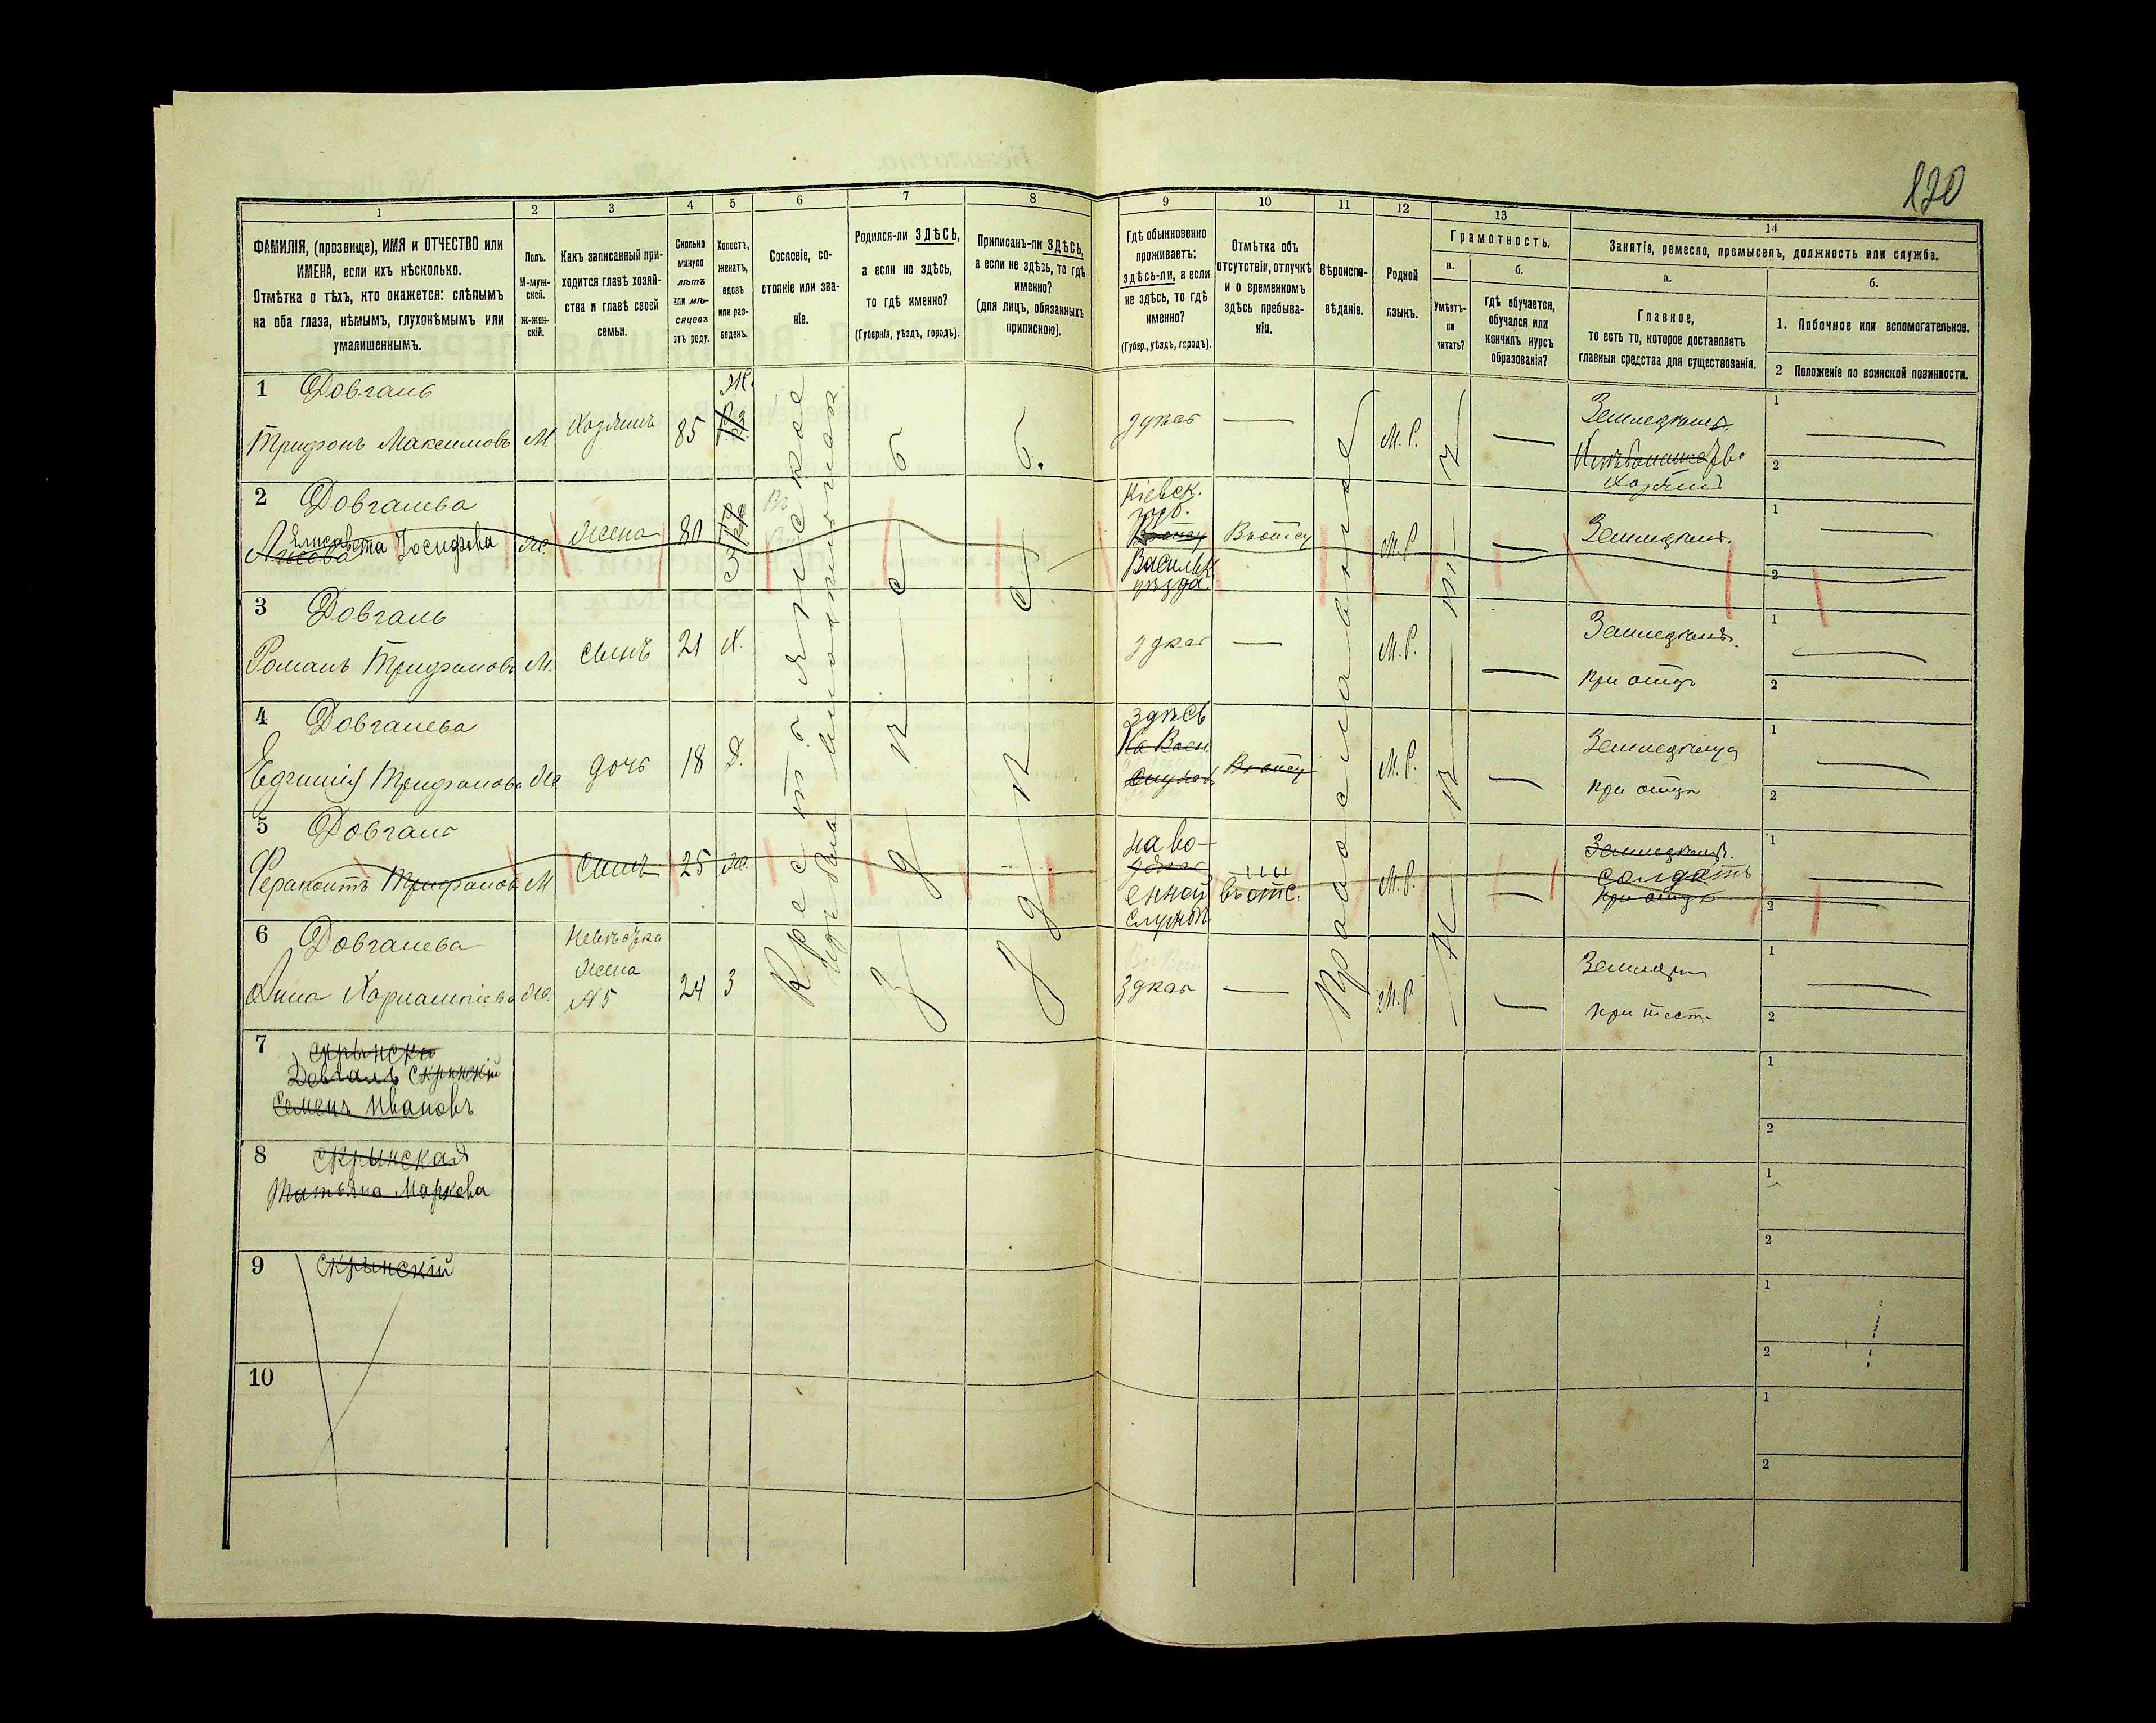 120
1
2
3
4
5
6
7
8
9
10
11
12
13
14
ФАМИЛІЯ, (прозвище), ИМЯ и ОТЧЕСТВО или
ИМЕНА, если ихъ нѣсколько.
Отмѣтка о тѣхъ, кто окажется: слѣпымъ
на оба глаза, нѣмымъ, глухонѣмымъ или
умалишеннымъ.
Полъ.
М-муж-
ской.
ж-жен-
скій.
Какъ записанный при-
ходится главѣ хозяй-
ства и главѣ своей
семьи.
Сколько
минуло
лѣтъ
или мѣ-
сяцевъ
отъ роду.
Холостъ,
женатъ,
вдовъ
или раз-
веденъ.
Сословіе, со-
стояніе или зва-
ніе.
Родился-ли ЗДѢСЬ,
а если не здѣсь,
то гдѣ именно?
(Губернія, уѣздъ, городъ).
Приписанъ-ли ЗДѢСЬ,
а если не здѣсь, то гдѣ
именно?
(для лицъ, обязанныхъ
припискою).
Гдѣ обыкновенно
проживаетъ:
здѣсь-ли, а если
не здѣсь, то гдѣ
именно?
(Губер., уѣздъ, городъ).
Отмѣтка объ
отсутствіи, отлучкѣ
и о временномъ
здѣсь пребыва-
ніи.
Вѣроиспо-
вѣданіе.
Родной
языкъ.
Грамотность.
а.
Умѣетъ-
ли
читать?
б.
гдѣ обучается,
обучался или
кончилъ курсъ
образованія?
Занятія, ремесло, промыселъ, должность или служба.
а.
Главное,
то есть то, которое доставляетъ
главныя средства для существованія.
б.
1. Побочное или вспомогательное.
2 Положеніе по воинской повинности.
1 Довгань
Трифонъ Максимовъ
М.
Хозяинъ
85
Ж.
здѣсь
М. Р.
Земледѣлецъ.
Хозяинъ
1
2
2 Довганева
Елисавета Іосифова
Ж.
жена
80
З
Кіевск.
губ.
Васильк
уѣзда.
Въ отсу
М. Р
Земледѣлецъ.
1
2
3 Довгань
Романъ Трифоновъ
М.
сынъ
21
Х.
здѣсь
М. Р.
Земледѣлецъ.
при отцѣ
1
2
4 Довганева
Трифонова
Ж.
дочь
18
Д.
здѣсь
На Воен.
Въ отсу
М. Р.
Земледѣлица
при отцѣ
1
2
5 Довгань
Ферапонтъ Трифонов
М
Сынъ
25
Ж.
на во-
здѣсь
енной
службѣ
въ отс.
М. Р.
Земледѣлецъ.
солдатъ
при отцѣ
1
2
6 Довганева
Анна Харлампіева
Ж.
Невѣстка
жена
№ 5
24
З
здѣсь
М. Р
при тест.
1
2
Крестьянское
Православное
здѣсь
здѣсь
нѣтъ
7 Скрынски
Довгаль Скрынскій
Семенъ Ивановъ
1
2
8 Скрынская
Татьяна Маркова
1
2
9 Скрынскій
1
2
10
1
2